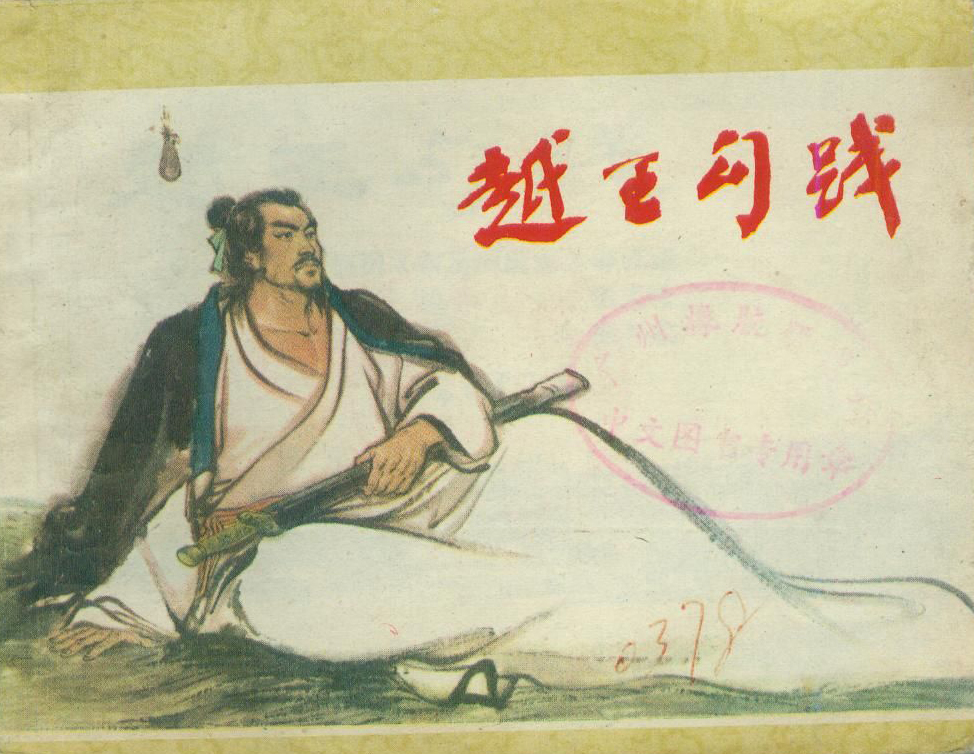 越王勾践
中文图书专用章
0378